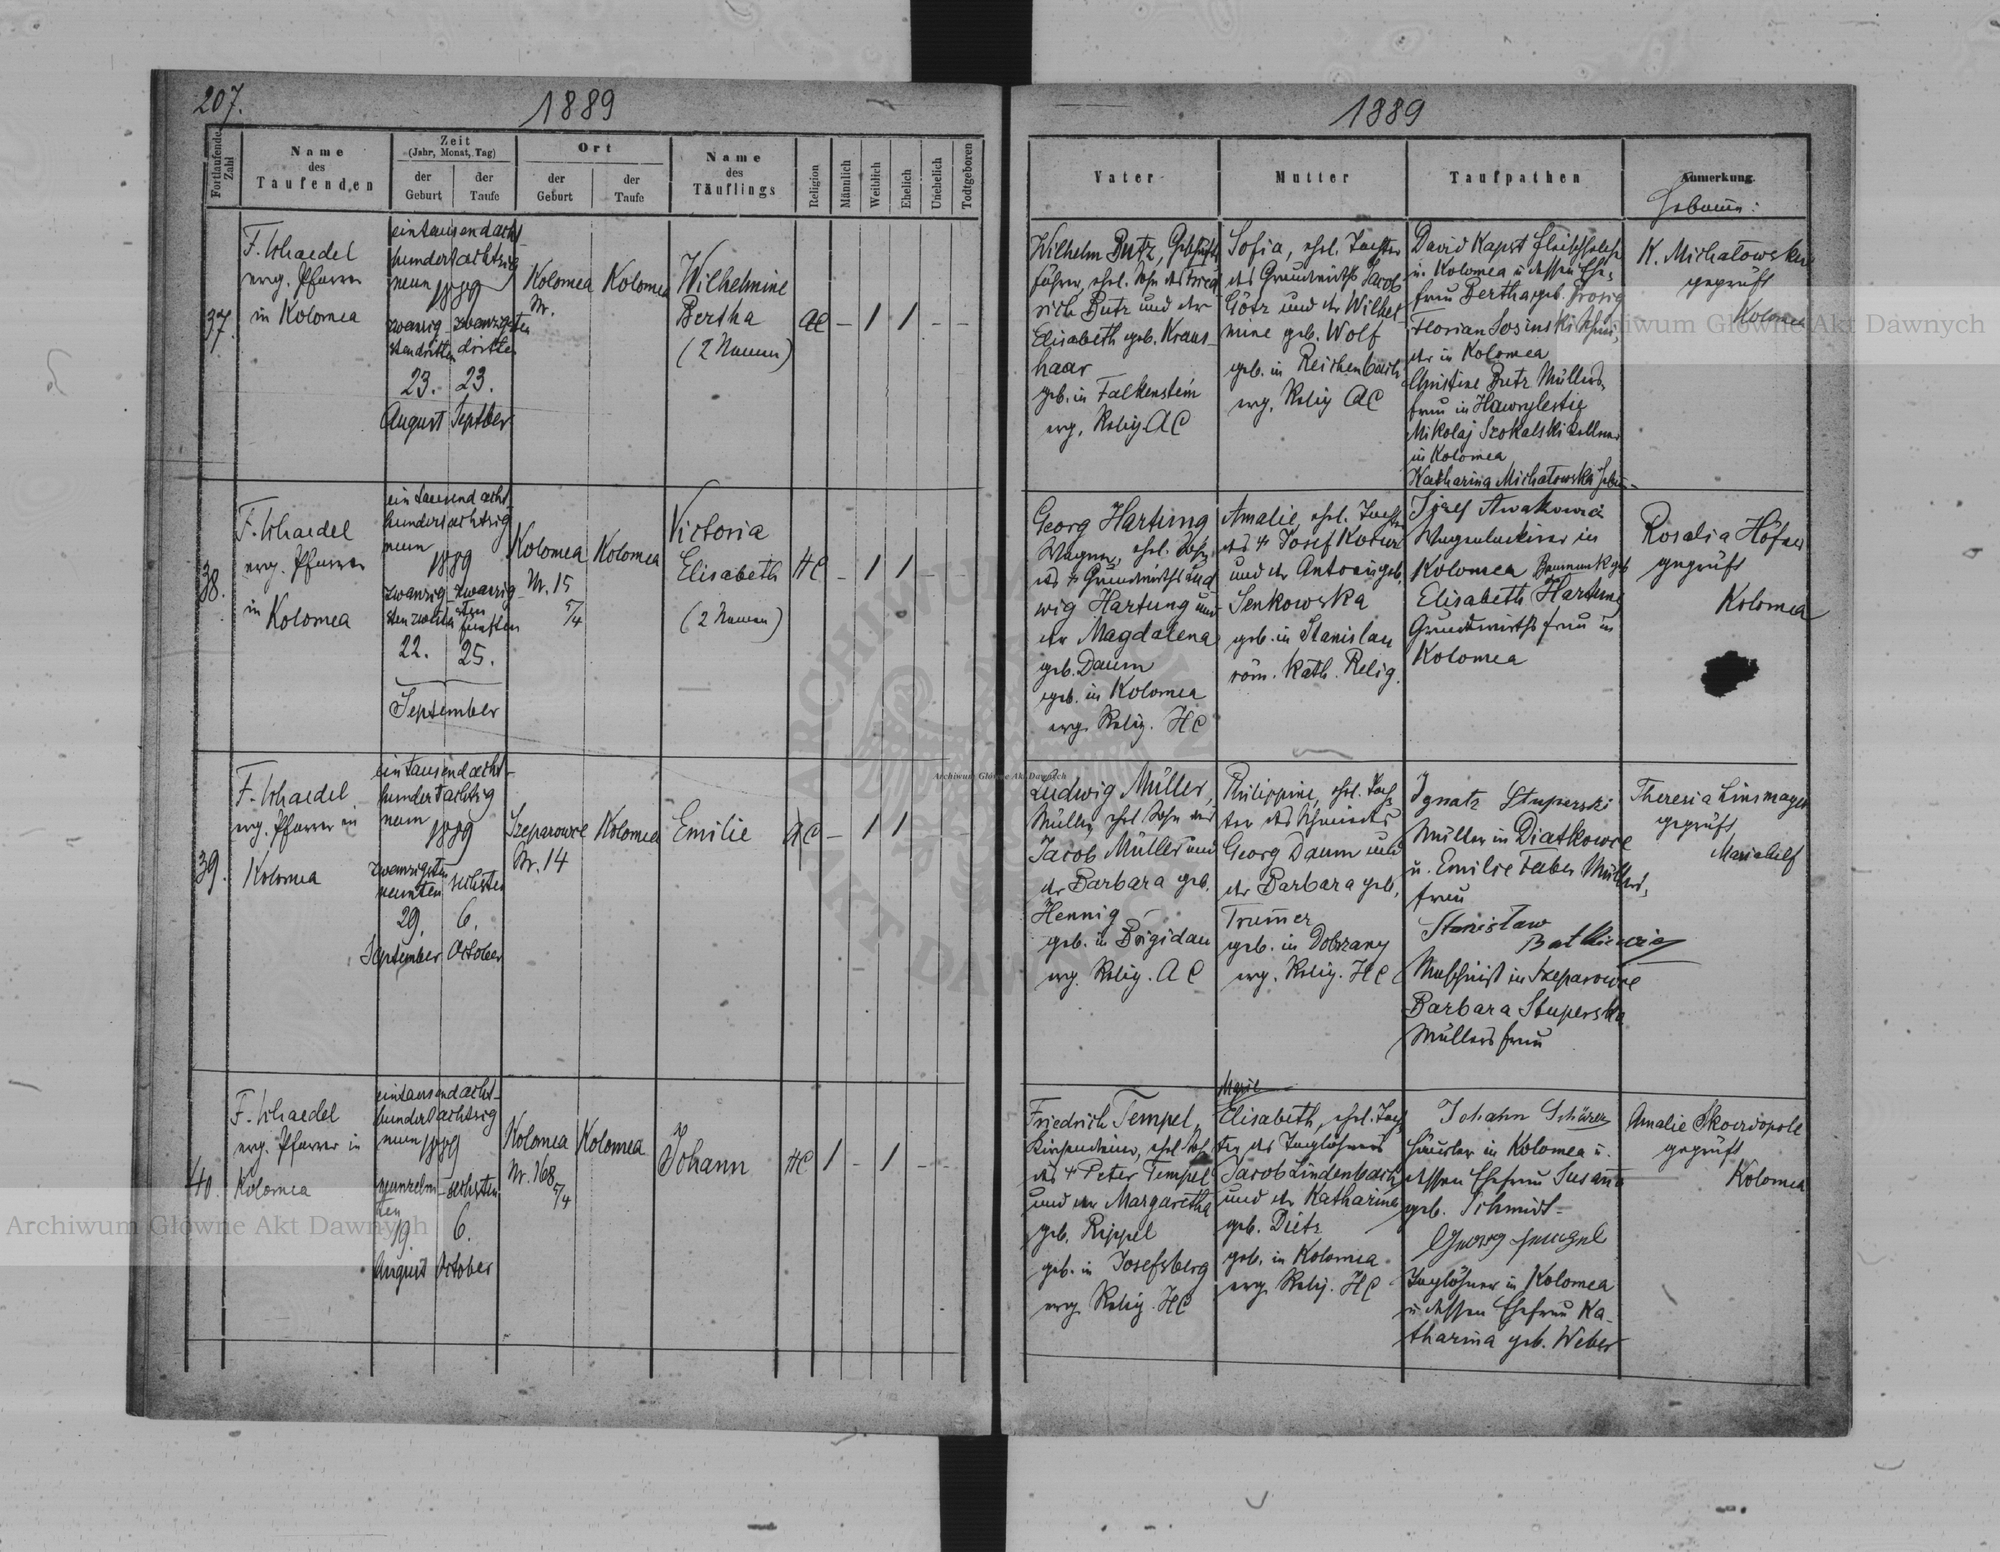 207.
1889
Fortlaufende Zahl
Name des Taufenden
Zeit
(Jahr, Monat, Tag)
der Geburt
der Taufe
Ort
der Geburt
der Taufe
Name des Täuflings
Religion
Männlich
Weiblich
Ehelich
Unehelich
Todtgeboren
37.
F. Schaedel
evg. Pfarrer
in Kolomea
eintausendacht-
hundertachtzig
neun
1889
zwanzig-
sten dritten
23.
August
zwanzigsten
dritten
23.
Septber
Kolomea
Nr.
Kolomea
Wilhelmine
Bertha
(2 Namen)
AC
38.
F. Schaedel
evg. Pfarrer
in Kolomea
eintausendacht-
hundertachtzig
neun
1889
zwanzig-
sten zweiten
22.
zwanzig-
sten
fünften
25.
September
Kolomea
Nr. 15
5/4
Kolomea
Victoria
Elisabeth
(2 Namen)
HC
39.
F. Schaedel
evg. Pfarrer in
Kolomea
eintausendacht-
hundertachtzig
neun
1889
zwanzigsten
neunten
29.
September
sechsten
6.
October
Szeparowce
Nr. 14
Kolomea
Emilie
AC
40.
F. Schaedel
evg. Pfarrer in
Kolomea
eintausendacht-
hundertachtzig
neun 1889
neunzehn-
ten
19.
August
sechsten
6.
October
Kolomea
Nr. 168
5/4
Kolomea
Johann
HC
1889
Vater
Mutter
Taufpathen
Anmerkung.
Hebamme:
Wilhelm Butz, Geschäfts
führer, ehel. Sohn des Fried
rich Butz und der
Elisabeth geb. Kraus-
haar
geb. in Falkenstein
evg. Relig. AC
Sofia, ehel. Tochter
des Grundwirths Jacob
Götz und der Wilhel
mine geb. Wolf
geb. in Reichenbach
evg. Relig AC
David Kapst Fleischselcher
in Kolomea u dessen Ehe-
frau Bertha geb. Prosig
Florian Sosinski
der in Kolomea
Christine Butz Müllers-
frau in Hawrylestie
Mikolaj Szokalski Kellner
in Kolomea
Katharina Michatowska
K. Michatowska
geprüft
Kolomea
Georg Hartung
Wagner, ehel. Sohn
des † Grundwirths Lud
wig Hartung und
der Magdalena
geb. Daum
geb. in Kolomea
evg. Relig. HC
Amalie, ehel. Tochter
des † Josef Kotur
und der Antonia geb.
Senkowska
geb. in Stanislau
röm. kath. Relig.
Josef Awakowicz
Wagenlackirer in
Kolomea
Elisabeth Hartung
Grundwirthsfrau in
Kolomea
Rosalia Höfner
geprüft
Kolomea
Ludwig Müller,
Müller, ehel Sohn des
Jacob Müller und
der Barbara geb.
Hennig
geb. in Brigidau
evg. Relig. AC
Philippine, ehel. Toch-
ter des Schmieds
Georg Daum und
der Barbara geb.
Trum̄er
geb. in Dobrzany
evg. Relig. HC
Ignatz Stuperski
Müller in Diatkowce
u. Emilie Faber Müllers-
frau
Stanisław
Batkiewicz
Maschinist in Szeparowce
Barbara Stuperska
Müllersfrau
Theresia Linsmayer
geprüft
Mariahilf
Friedrich Tempel,
Kirchendiener, ehel Sohn
des † Peter Tempel
und der Margaretha
geb. Rippel
geb. in Josefsberg
evg. Relig. HC
Marie
Elisabeth, ehel. Toch
ter des Taglöhners
Jacob Lindenbach
und der Katharina
geb. Dietz
geb. in Kolomea
evg. Relig. HC
Johann Schärer
Häusler in Kolomea u.
dessen Ehefrau Susan̄a
geb. Schmidt-
Georg Hengel
Taglöhner in Kolomea
u dessen Ehefrau Ka-
tharina geb. Weber
Amalie Skoerdopole
geprüft
Kolomea
Archiwum Główne Akt Dawnych
Archiwum Główne Akt Dawnych
Archiwum Główne Akt Dawnych